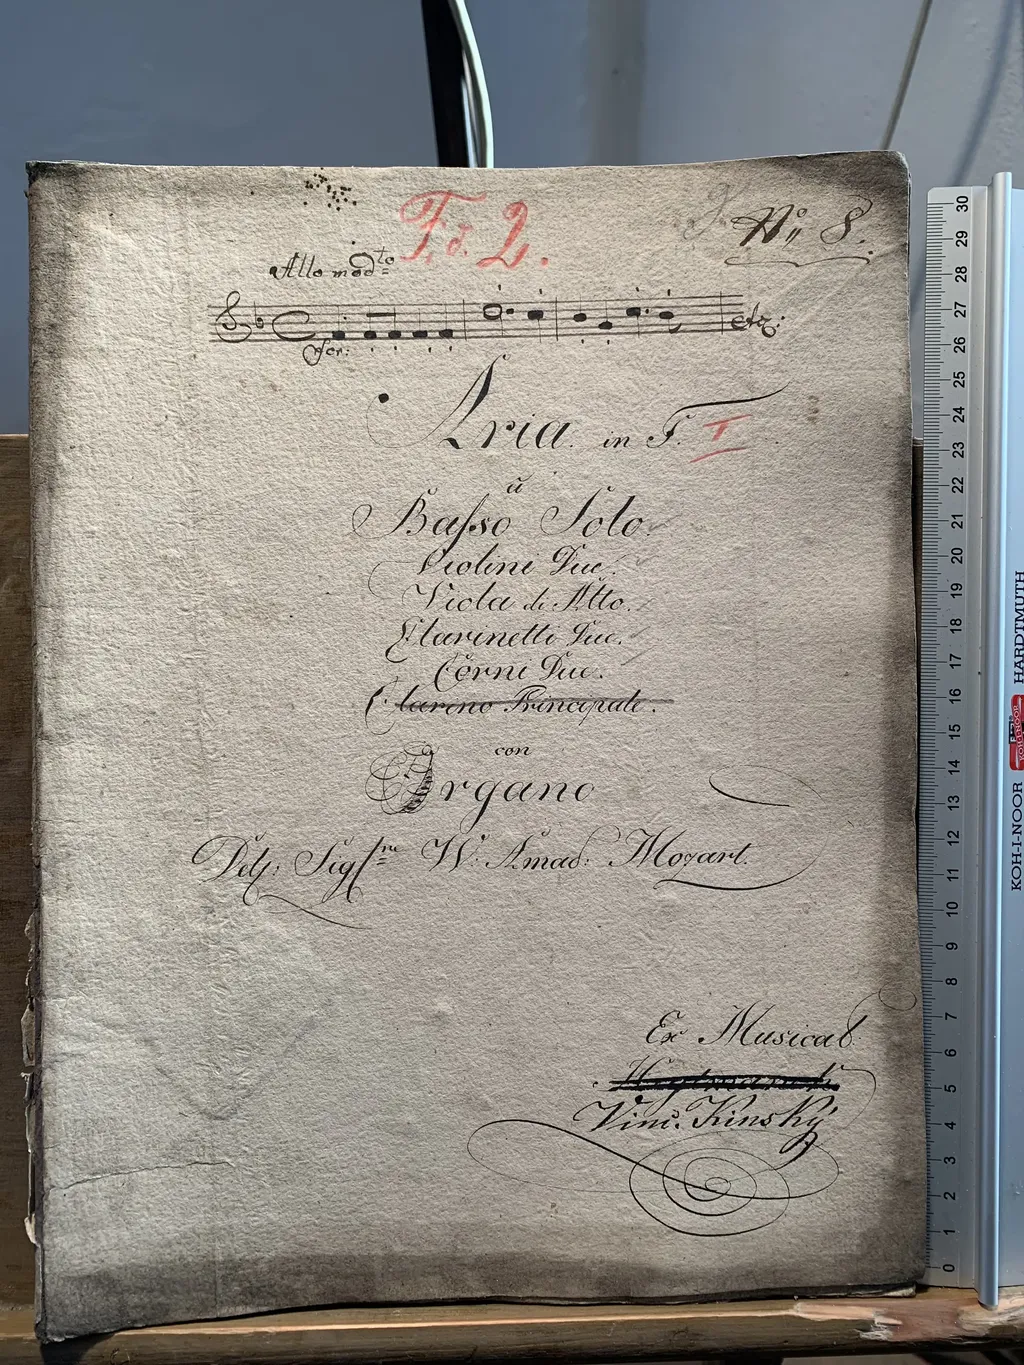 F. d. 2.
No. 8.
Allo modto
for:
etz:
Aria in F. I
à
Basso Solo.
Violini Due.
Viola di Alto.
Clarinetti Due.
Corni Due.
Clareno Principale.
con
Organo
Del: Sigre W: Amad: Mozart.
Ex Musical
Vinc. Kinský
30
29
28
27
26
25
24
23
22
21
20
19
18
17
16
15
14
13
12
11
10
9
8
7
6
5
4
3
2
1
0
KOH-I-NOOR HARDTMUTH
KOH-I-NOOR